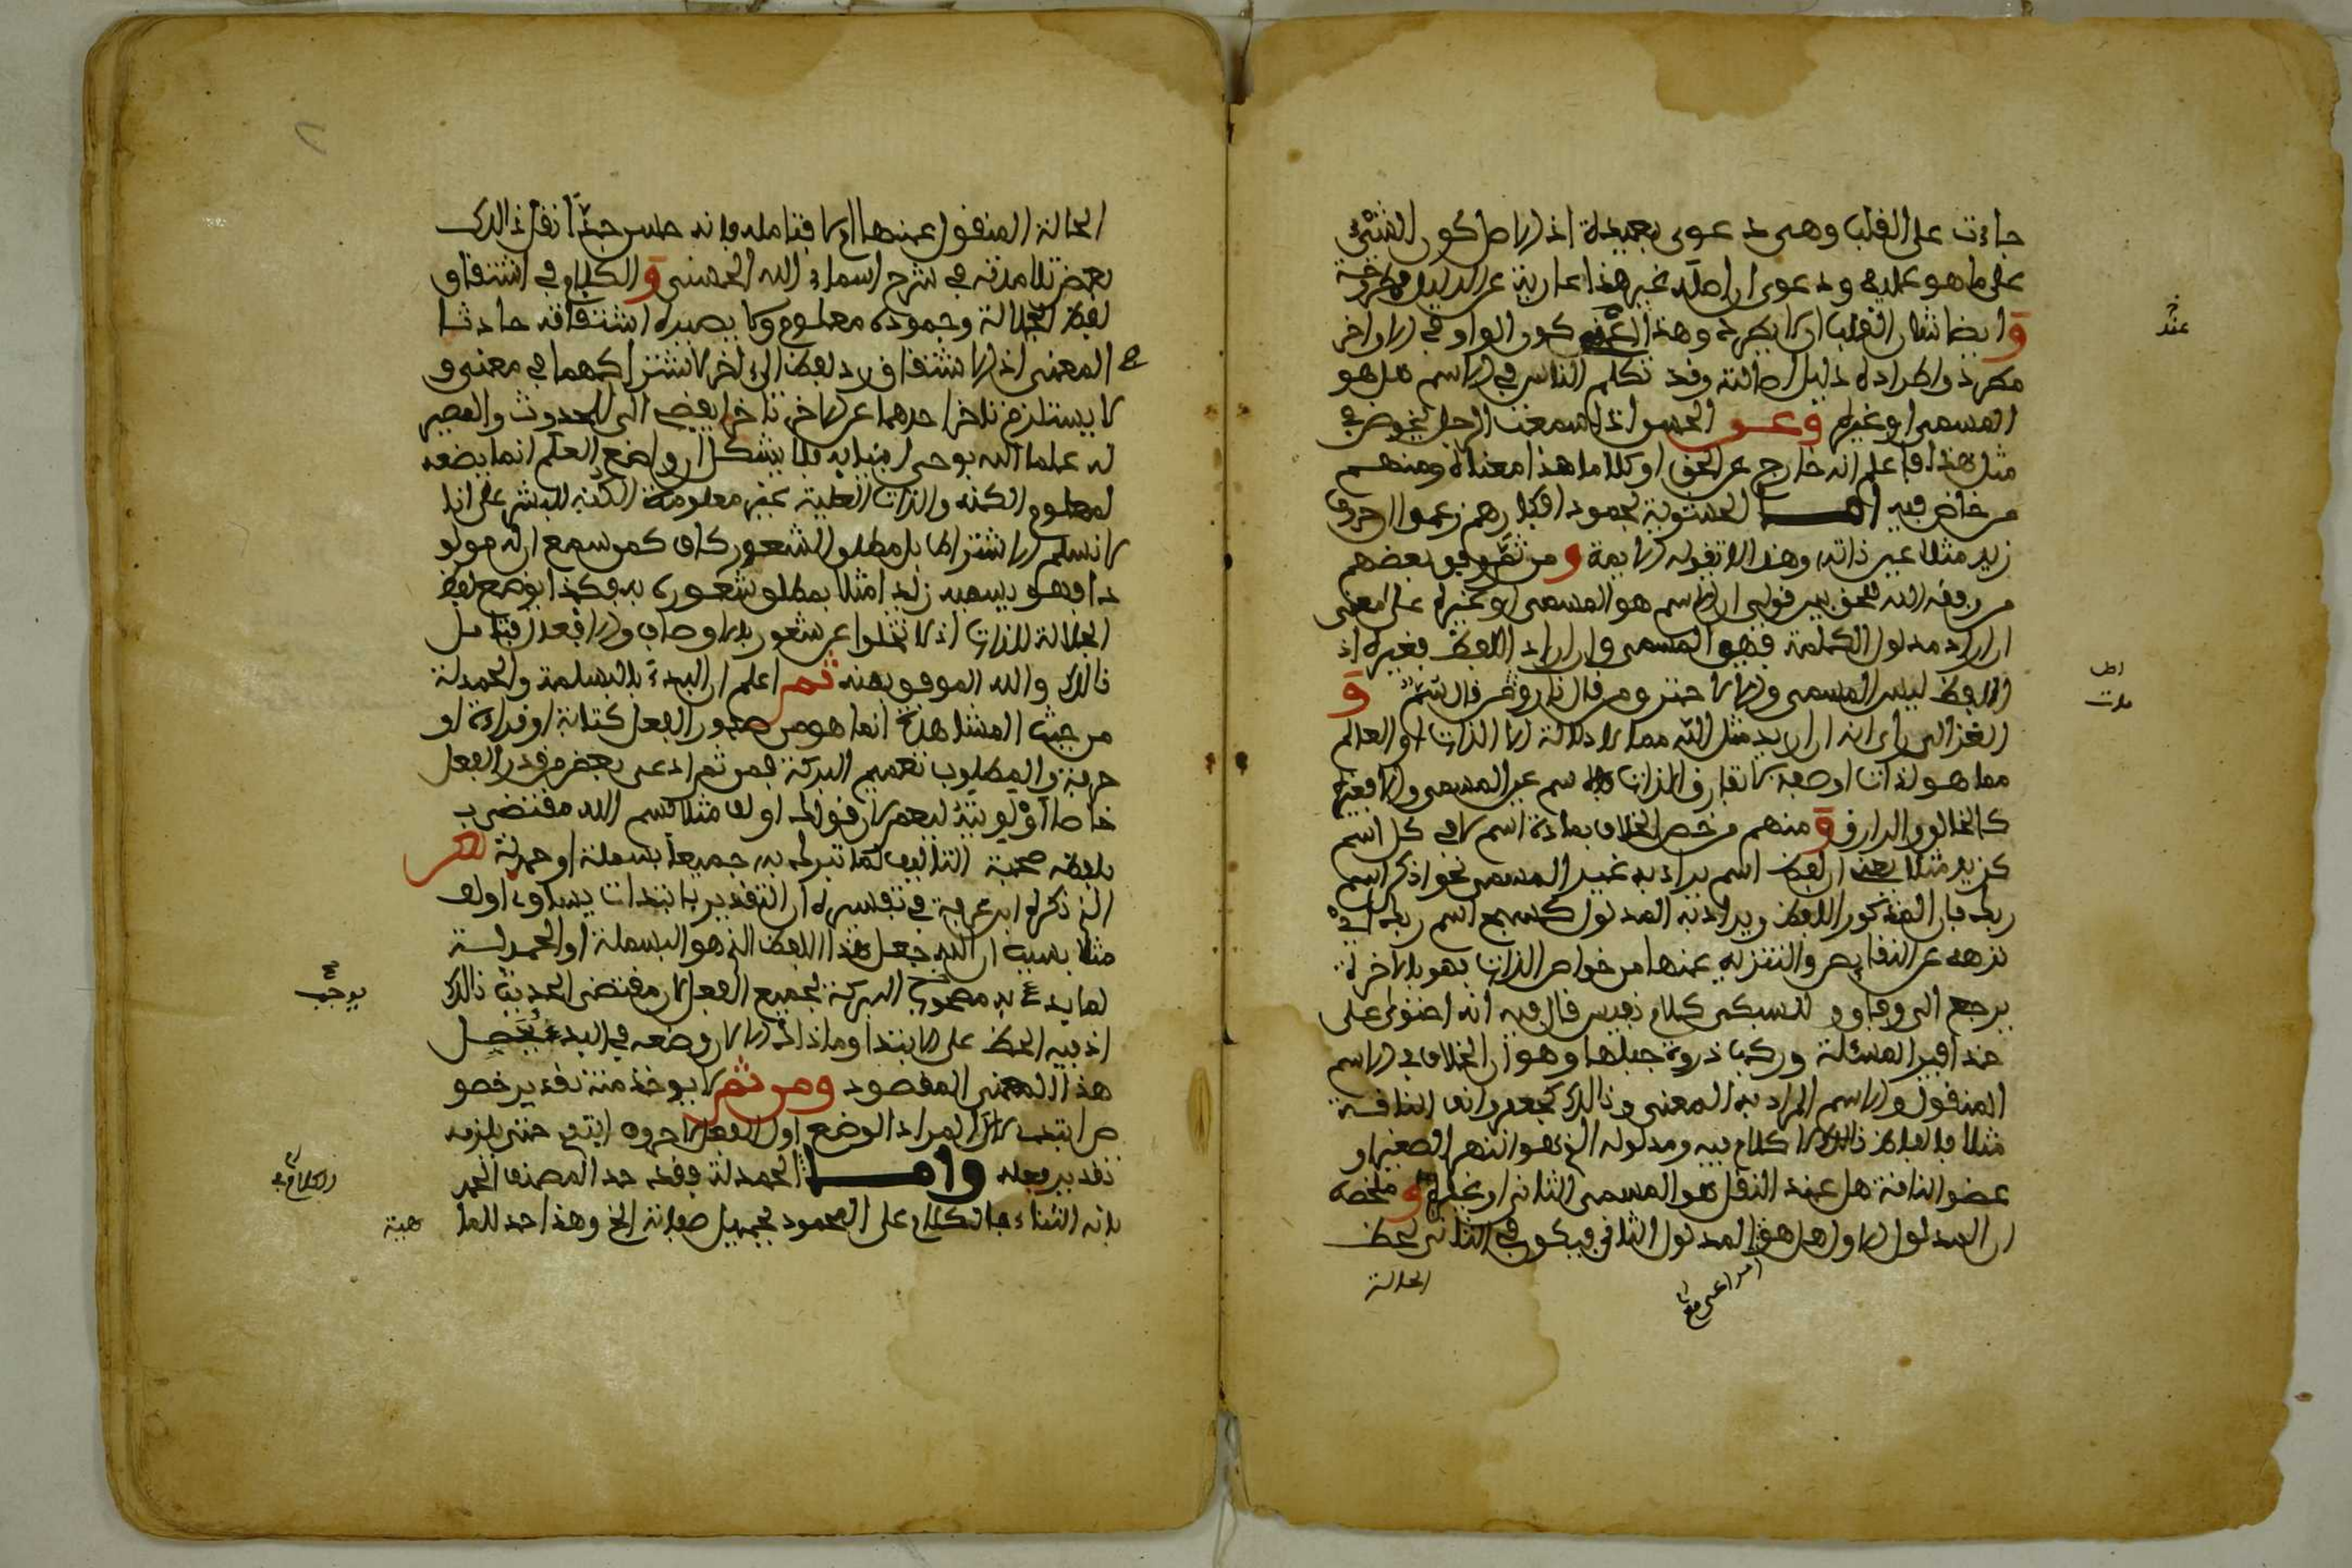 جاءت على القلب وهي دعوى بعيدة اذ الاصل كون الشيء
على ما هو عليه ودعوى ان اصله غير هذا عارية عن الدليل مطروحة
وَ ايضا شان القلب ان لا يطرد وهذا كون الواو في الاواخر
مطرد واطراده دليل اصالته وقد تكلم الناس في الاسم هل هو
المسمى او غيره وعـن اذا سمعت الرجل يخوض في
مثل هذا فاعلم انه خارج عن الحق او كلاما هذا معناه ومنهم
من خاض فيه امـا الحشوية لجمود افكارهم زعموا ان حروف
زيد مثلا عين ذاته وهذا لا تقوله الا بهمة و من ثم وفق بعضهم
من وفقه الله للحق بين قولي ان الاسم هو المسمى او غيره على معنى
ان اراد مدلول الكلمة فهو المسمى وان اراد اللفظ فغيره اذ
اللفظ ليس المسمى والا لاحترق من قال نار وَ
الغزالي راى انه ان اريد مثل الله مما لا دلالة الا الذات او العالم
مما هو لذات او صفة لا تفارق الذات فالاسم عين المسمى والا فغيره
كالخالق والرازق وَ منهم من خص الخلاف بمادة اسم لا في كل اسم
كزيد مثلا يعني ان لفظ اسم يراد به غير المسمى نحو اذكر اسم
ربك فان المذكور اللفظ ويراد به المدلول كسبح اسم ربك اي
نزهه عن النقايص والتنزيه عنها من خواص الذات فهو بالاخرة
يرجع الى وفاق و للسبكي كلام نفيس قال فيه انه احتوى على
حذافير المسئلة وركب ذروة جبلها وهو ان الخلاف في الاسم
المنقول والاسم المراد به المعنى وذالك كجعفر وانف الناقة
مثلا فاللفظ ذالك لا كلام فيه ومدلوله الخ هو النهر الصغير او
عضو الناقة هل عند النقل هو المسمى الثاني او غيره و ملخصه
ان المدلول الاول هل هو المدلول الثاني فيكون في الثاني لحظ
الحالة
عند
الحالة المنقول عنها ام لا فتامله فانه حسن جدا نقل ذالك
بعض تلامذته في شرح اسماء الله الحسنى وَ الكلام في اشتقاق
لفظ الجلالة وجموده معلوم ولا يصيره اشتقاقه حادثا
المعنى اذ الاشتقاق رد لفظ الى اخر لاشتراكهما في معنى و
لا يستلزم تاخر احدهما عن الاخر تاخرا يفضي الى الحدوث والمصير
له علما انه بوحي انبيايه فلا يشكل ان واضع العلم انما يضعه
لمعلوم الكنه والذات العلية غير معلومة الكنه للبشر على انا
لا نسلم الاشتراط بل مطلق الشعور كاف كمن سمع ان له مولو
دا فهو يسميه زيدا مثلا بمطلق شعوره به فكذا بوضع لفظ
الجلالة للذات اذ لا تخلوا عن شعور بالاوصاف والافعال فتامل
ذالك والله الموفق بمنه ثم اعلم ان البدء بالبسملة والحمدلة
من حيث المشاهدة انما هو من صور الفعل كتابة او قراءة او
حرفة والمطلوب تعميم البركة فمن ثم ادعى بعض من قدر الفعل
خاصا اولويته ليعم لان قولك اولف مثلا بسم الله مقتض
بلفظه صحبة التاليف لما تبرك به جميعا بسملة او حمدلة
الذي ذكره ابن عرفة في تفسيره ان التقدير بابتدات يساوي اولف
مثلا بسبب ان الله جعل هذا اللفظ الذي هو البسملة او الحمدلة
لما بدئ به البركة لجميع الفعل لان مقتضى الحديث ذالك
اذ فيه الحظ على الابتدا وما ذاك الا لان وضعه في البدء يحصل
هذا المعنى المقصود ومن ثم لا يوخذ منه تقدير خصو
ص ابتدا لان المراد الوضع اول الفعل لا حروف ابتدئ حتى يلزم
تقدير فعله وامـا الحمدلة فقد حد المصنف الحمد
بانه الثناء بالكلام على المحمود بجميل صفاته الخ وهذا حد للما
هية
يوجب
والكلام في